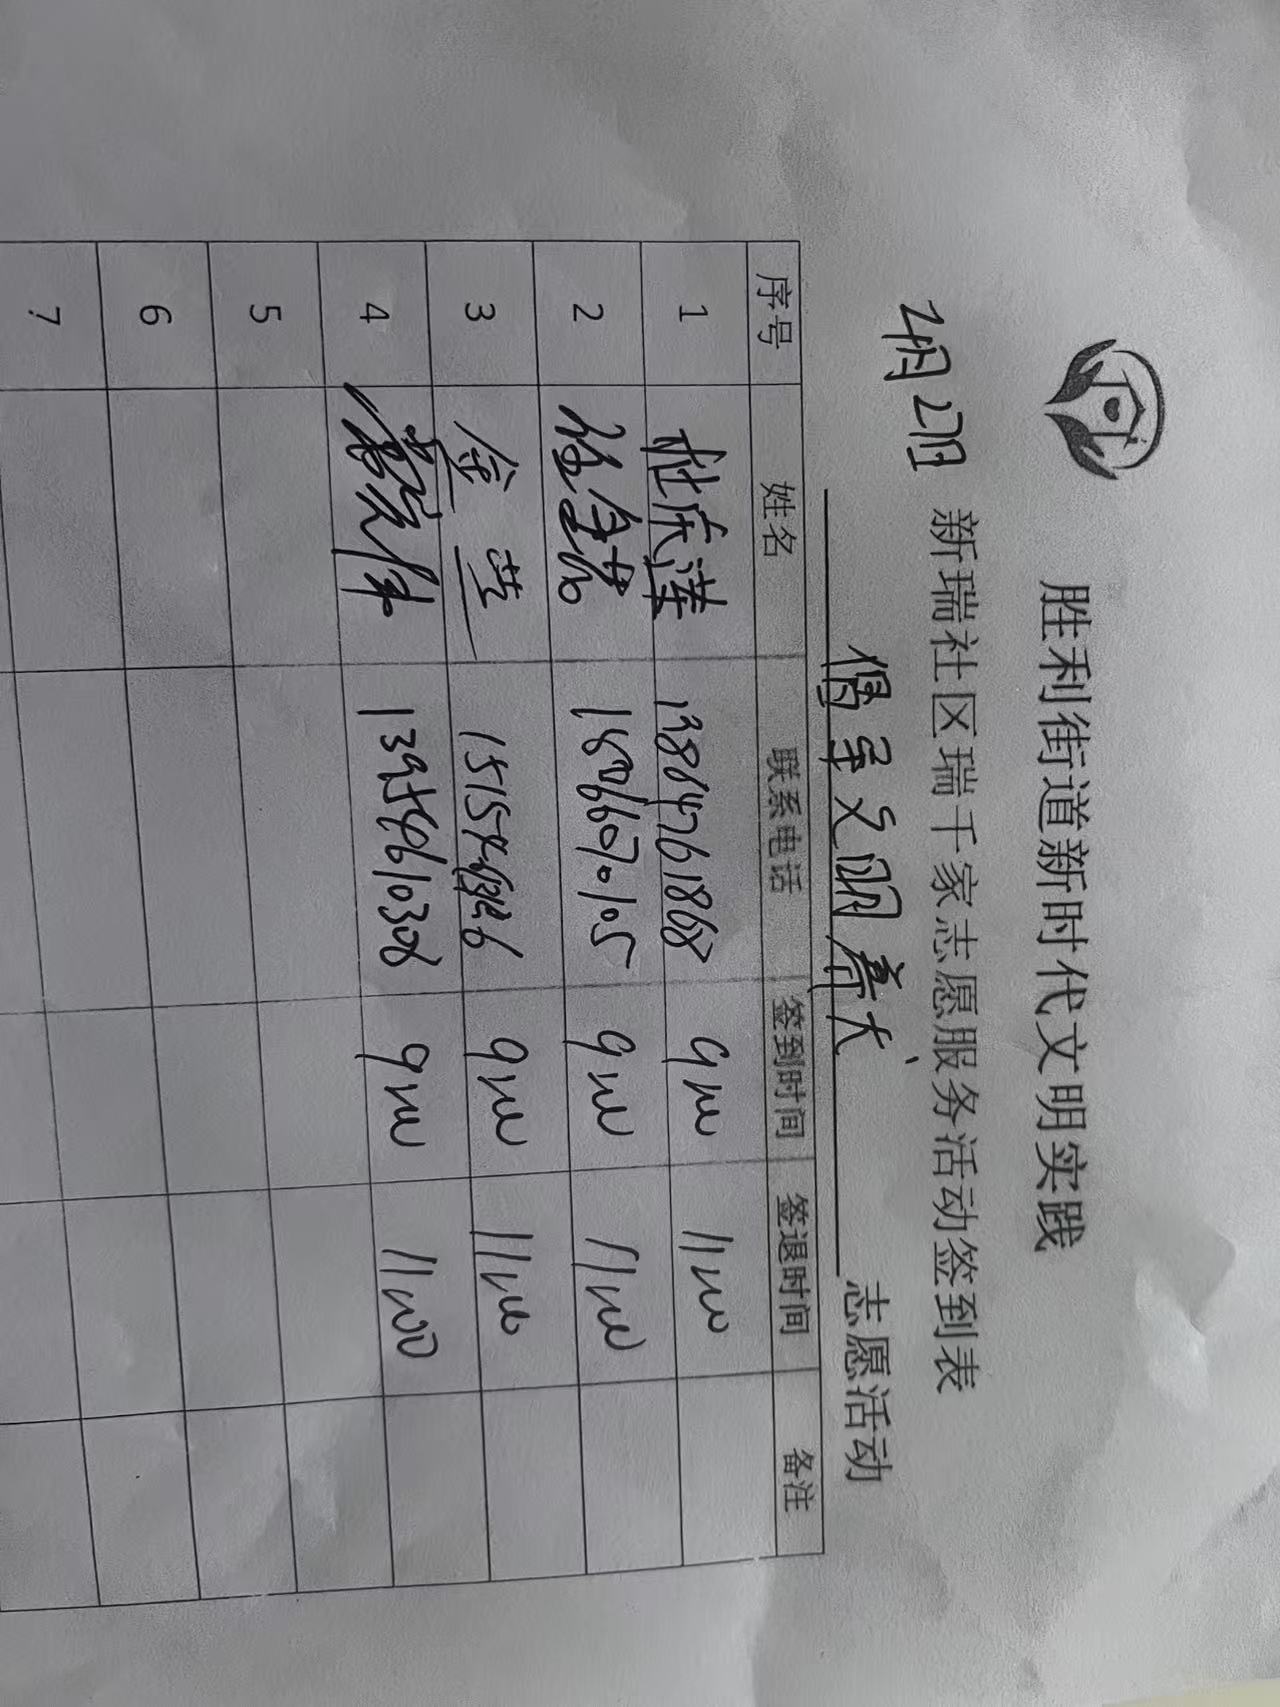 胜利街道新时代文明实践
新瑞社区瑞千家志愿服务活动签到表
倡导文明养犬 志愿活动
序号 姓名 联系电话 签到时间 签退时间 备注
1 杜庆莲 13864761868 9:00 11:00
2 18066070105 9:00 11:00
3 金 9:00 11:00
4 13954610308 9:00 11:00
5
6
7